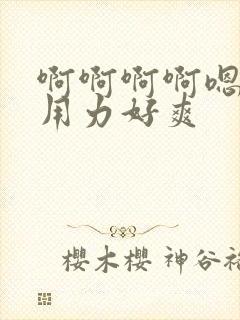 啊啊啊啊嗯
用力好爽
櫻木櫻 神谷